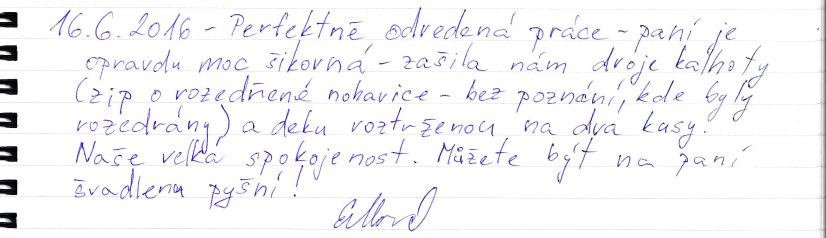 16.6.2016 - Perfektně odvedená práce - paní je
opravdu moc šikovná - zašila nám dvoje kalhoty
(zip o rozedřené nohavice - bez poznání, kde byly
rozedrány) a deku roztrženou na dva kusy.
Naše velká spokojenost. Můžete být na paní
švadlenu pyšní!